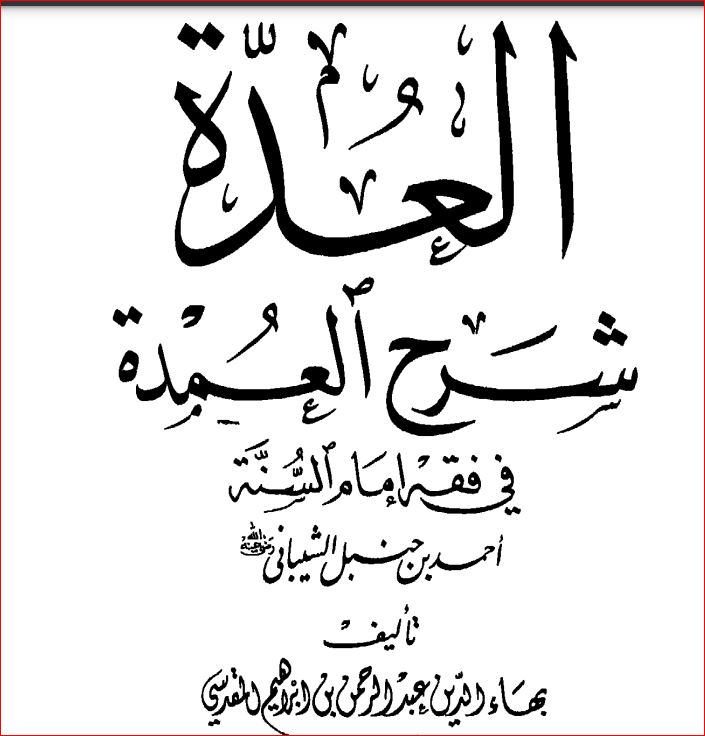 العُدّة
شرح العُمدة
في فقه إمام السُّنَّة
أحمد بن حنبل الشيباني رضي الله عنه
تأليف
بهاء الدين عبد الرحمن بن ابراهيم المقدسي